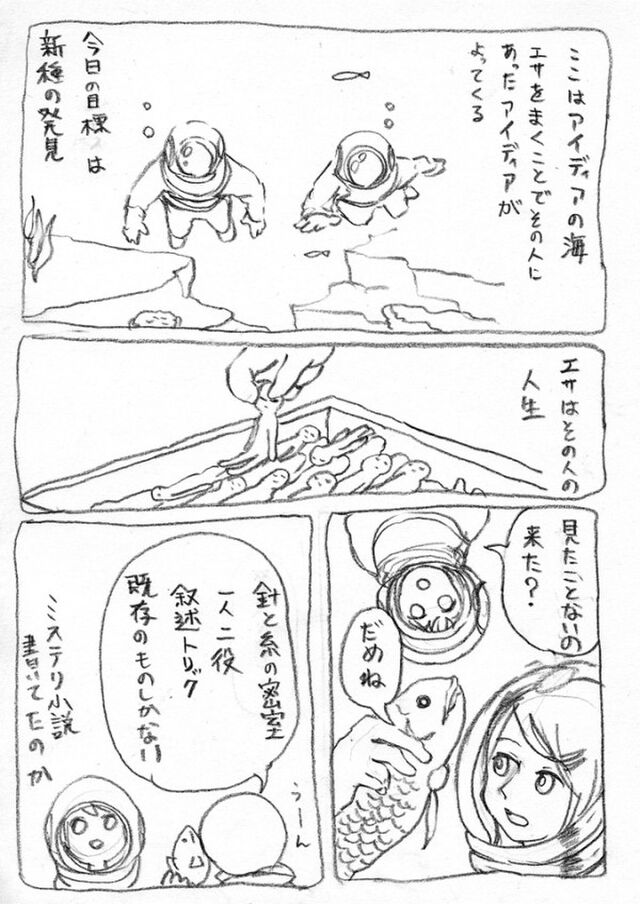 ここはアイディアの海
エサをまくことでその人に
あったアイディアが
よってくる
今日の目標は
新種の発見
エサはその人の
人生
見たことないの
来た?
だめね
針と糸の密室
一人二役
叙述トリック
既存のものしかない
うーん
ミステリ小説
書いてたのか